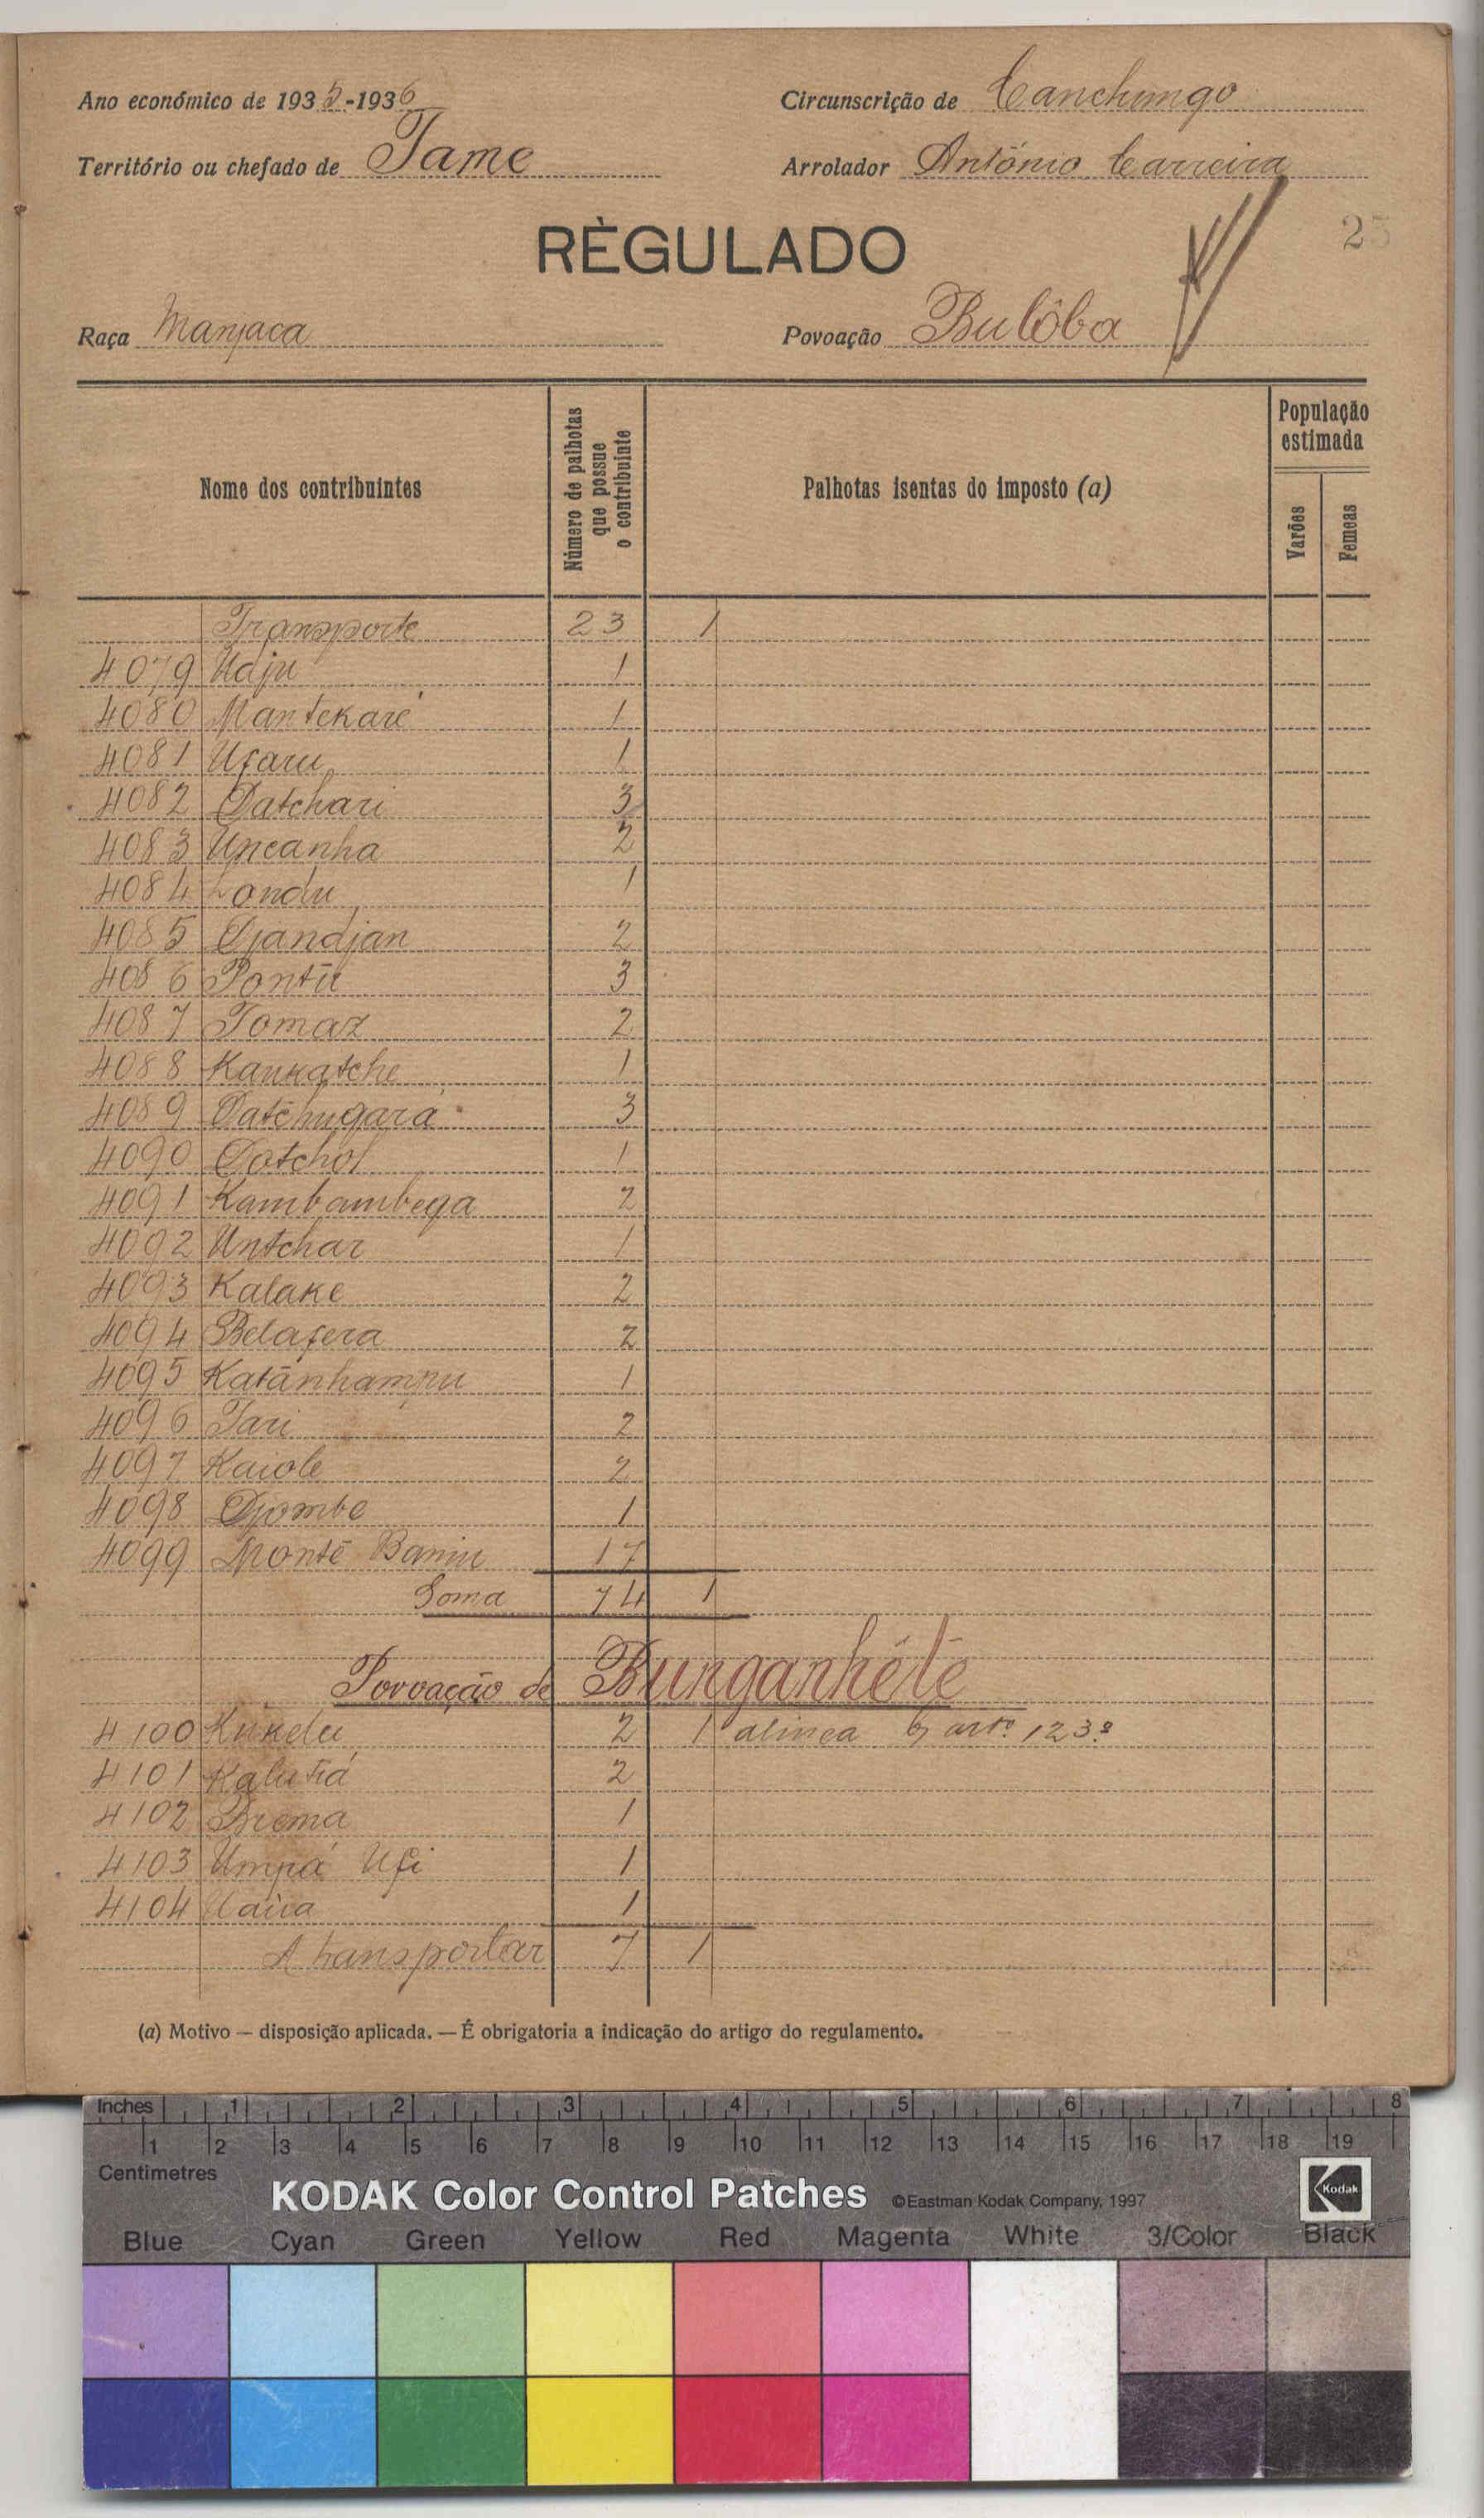 Ano económico de 1935-1936
Circunscrição de Canchungo
Território ou chefado de Tame
Arrolador António Carreira
RÈGULADO
25
Raça Manjaca
Povoação Bulôba
Nome dos contribuintes
Número de palhotas que possue o contribuinte
Palhotas isentas do imposto (a)
População estimada
Varões
Femeas
Transporte 23 1
4079 Udju 1
4080 Mantekaré 1
4081 Ufaru 1
4082 Datchari 3
4083 Uncanha 2
4084 Londu 1
4085 Djandjan 2
4086 Pontu 3
4087 Tomaz 2
4088 Kankatche 1
4089 Datchugará 3
4090 Datchol 1
4091 Kambambega 2
4092 Untchar 1
4093 Kalake 2
4094 Belafera 2
4095 Katanhampu 1
4096 Tari 2
4097 Kaiole 2
4098 Djombe 1
4099 Monté Baniu 17
Soma 74 1
Povoação de Bunganhéte
4100 Kukelu 2 1 alinea b, artº 123º
4101 Kalutiá 2
4102 Brema 1
4103 Umpá Ufi 1
4104 Uaira 1
A transportar 7 1
(a) Motivo — disposição aplicada. — É obrigatoria a indicação do artigo do regulamento.
Inches 1 2 3 4 5 6 7 8
1 2 3 4 5 6 7 8 9 10 11 12 13 14 15 16 17 18 19
Centimetres
KODAK Color Control Patches ©Eastman Kodak Company, 1997 Kodak
Blue Cyan Green Yellow Red Magenta White 3/Color Black